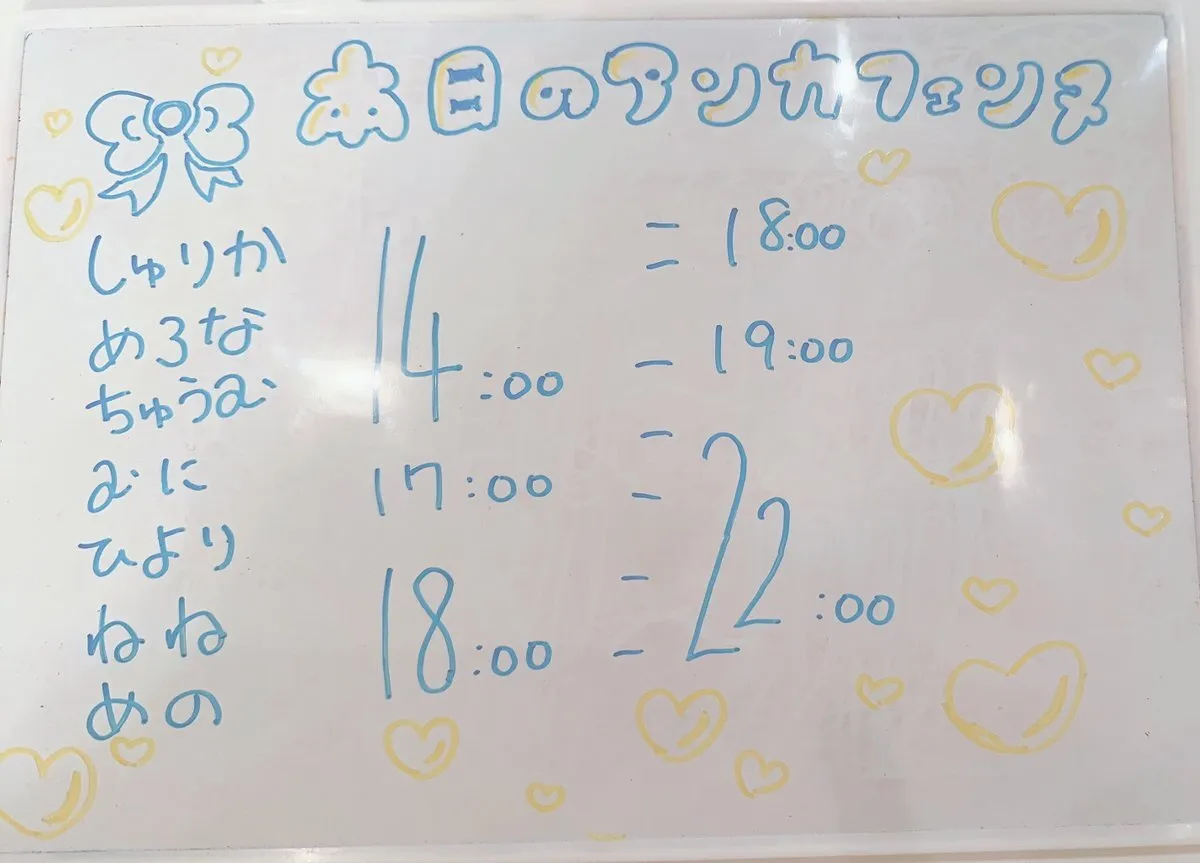 本日のアンカフェンヌ
しゅりか
めろな
ちゅうむ
むに
ひより
ねね
めの
14:00
17:00
18:00
- - 18:00
- 19:00
- - - - 22:00